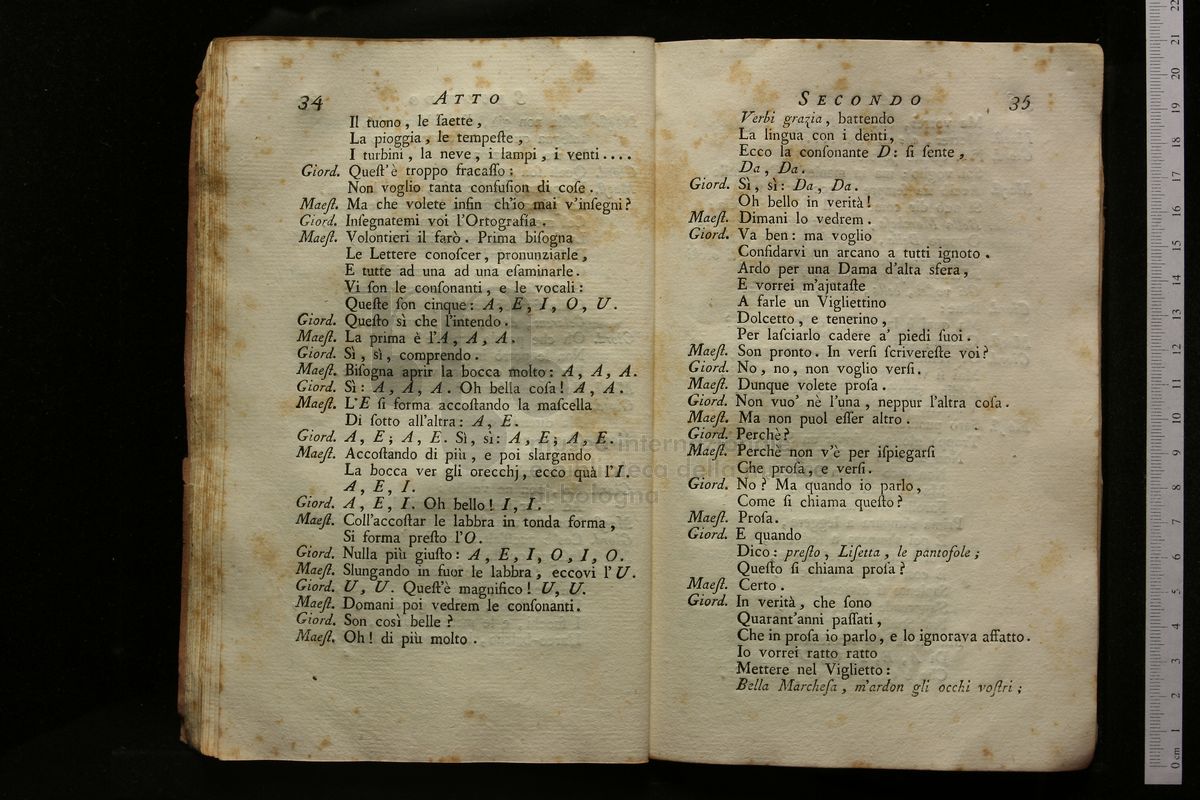 34 ATTO
Il tuono, le ſaette,
La pioggia, le tempeſte,
I turbini, la neve, i lampi, i venti....
Giord. Queſt'è troppo fracaſſo:
Non voglio tanta confuſion di coſe.
Maeſt. Ma che volete inſin ch'io mai v'inſegni?
Giord. Inſegnatemi voi l'Ortografia.
Maeſt. Volontieri il farò. Prima biſogna
Le Lettere conoſcer, pronunziarle,
E tutte ad una ad una eſaminarle.
Vi ſon le conſonanti, e le vocali:
Queſte ſon cinque: A, E, I, O, U.
Giord. Queſto sì che l'intendo.
Maeſt. La prima è l'A, A, A.
Giord. Sì, sì, comprendo.
Maeſt. Biſogna aprir la bocca molto: A, A, A.
Giord. Sì: A, A, A. Oh bella coſa! A, A.
Maeſt. L'E ſi forma accoſtando la maſcella
Di ſotto all'altra: A, E.
Giord. A, E; A, E. Sì, sì: A, E; A, E.
Maeſt. Accoſtando di più, e poi slargando
La bocca ver gli orecchj, ecco quà l'I.
A, E, I.
Giord. A, E, I. Oh bello! I, I.
Maeſt. Coll'accoſtar le labbra in tonda forma,
Si forma preſto l'O.
Giord. Nulla più giuſto: A, E, I, O, I, O.
Maeſt. Slungando in fuor le labbra, eccovi l'U.
Giord. U, U. Queſt'è magnifico! U, U.
Maeſt. Domani poi vedrem le conſonanti.
Giord. Son così belle?
Maeſt. Oh! di più molto.
SECONDO 35
Verbi grazia, battendo
La lingua con i denti,
Ecco la conſonante D: ſi ſente,
Da, Da.
Giord. Sì, sì: Da, Da.
Oh bello in verità!
Maeſt. Dimani lo vedrem.
Giord. Va ben: ma voglio
Confidarvi un arcano a tutti ignoto.
Ardo per una Dama d'alta sfera,
E vorrei m'ajutaſte
A farle un Vigliettino
Dolcetto, e tenerino,
Per laſciarlo cadere a' piedi ſuoi.
Maeſt. Son pronto. In verſi ſcrivereſte voi?
Giord. No, no, non voglio verſi.
Maeſt. Dunque volete proſa.
Giord. Non vuo' nè l'una, neppur l'altra coſa.
Maeſt. Ma non puol eſſer altro.
Giord. Perchè?
Maeſt. Perchè non v'è per iſpiegarſi
Che proſa, e verſi.
Giord. No? Ma quando io parlo,
Come ſi chiama queſto?
Maeſt. Proſa.
Giord. E quando
Dico: preſto, Liſetta, le pantofole;
Queſto ſi chiama proſa?
Maeſt. Certo.
Giord. In verità, che ſono
Quarant'anni paſſati,
Che in proſa io parlo, e lo ignorava affatto.
Io vorrei ratto ratto
Mettere nel Viglietto:
Bella Marcheſa, m'ardon gli occhi voſtri;